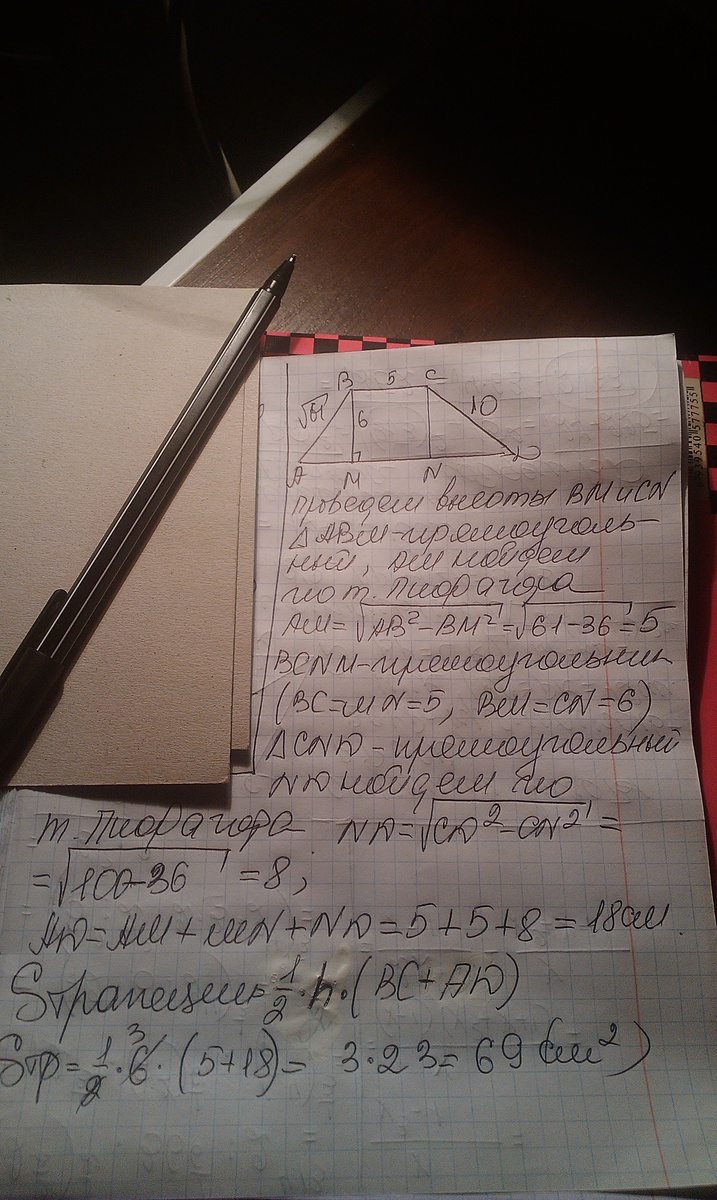 B 5 C
√61 6 10
A M N D
проведем высоты BM и CN
△ ABM - прямоуголь-
ный, AM найдем
по т. Пифагора
AM = √AB² - BM² = √61 - 36 = 5
BCNM - прямоугольник
(BC = MN = 5, BM = CN = 6)
△ CND - прямоугольный
ND найдем по
т. Пифагора ND = √CD² - CN² =
= √100 - 36 = 8;
AD = AM + MN + ND = 5 + 5 + 8 = 18 см.
Sтрапеции = 1/2 · h · (BC + AD)
3
Sтр = 1/2 · 6 · (5 + 18) = 3 · 23 = 69 (см²)